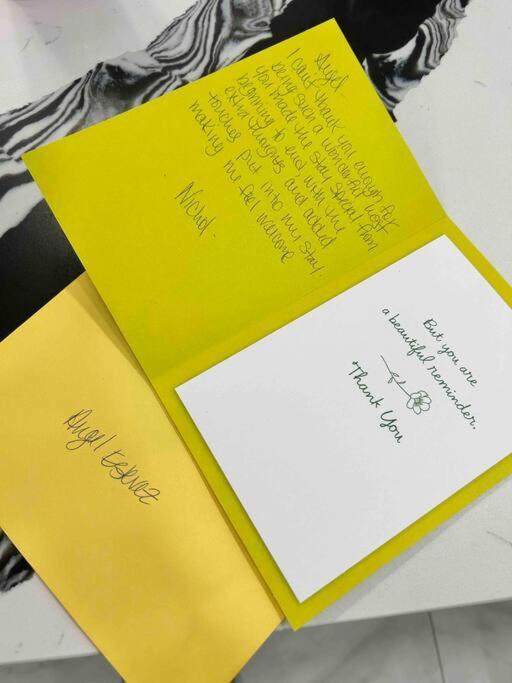 Angel
I can't thank you enough for
being such a wonderful host
you made the stay special from
beginning to end, with the
extra thoughts and added
touches put into my stay.
making me feel welcome
Nichol.
But you are
a beautiful reminder.
Thank You
Angel